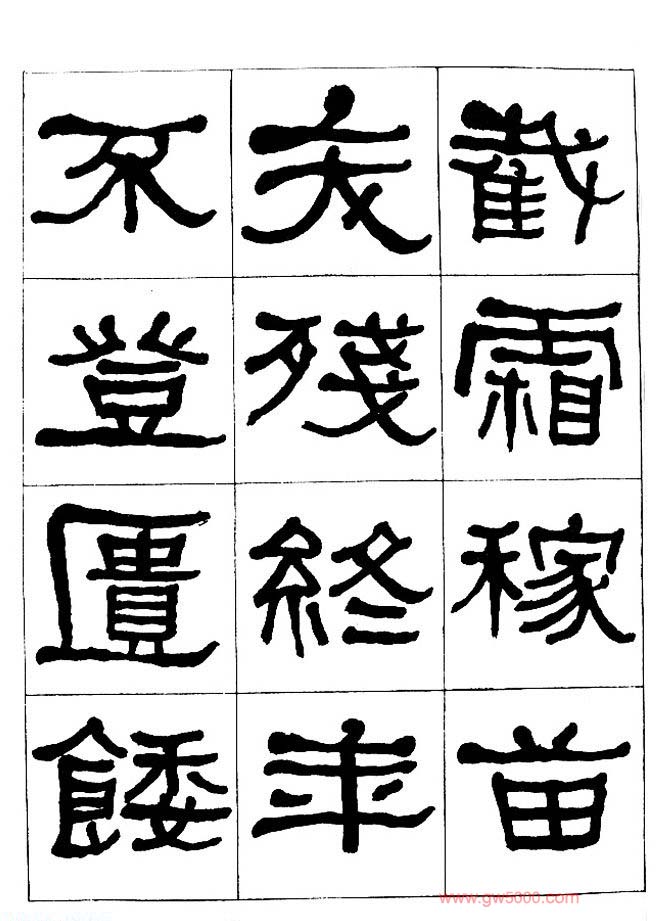 截霜稼苗
夭殘終年
不登匱餧
www.gw5000.com